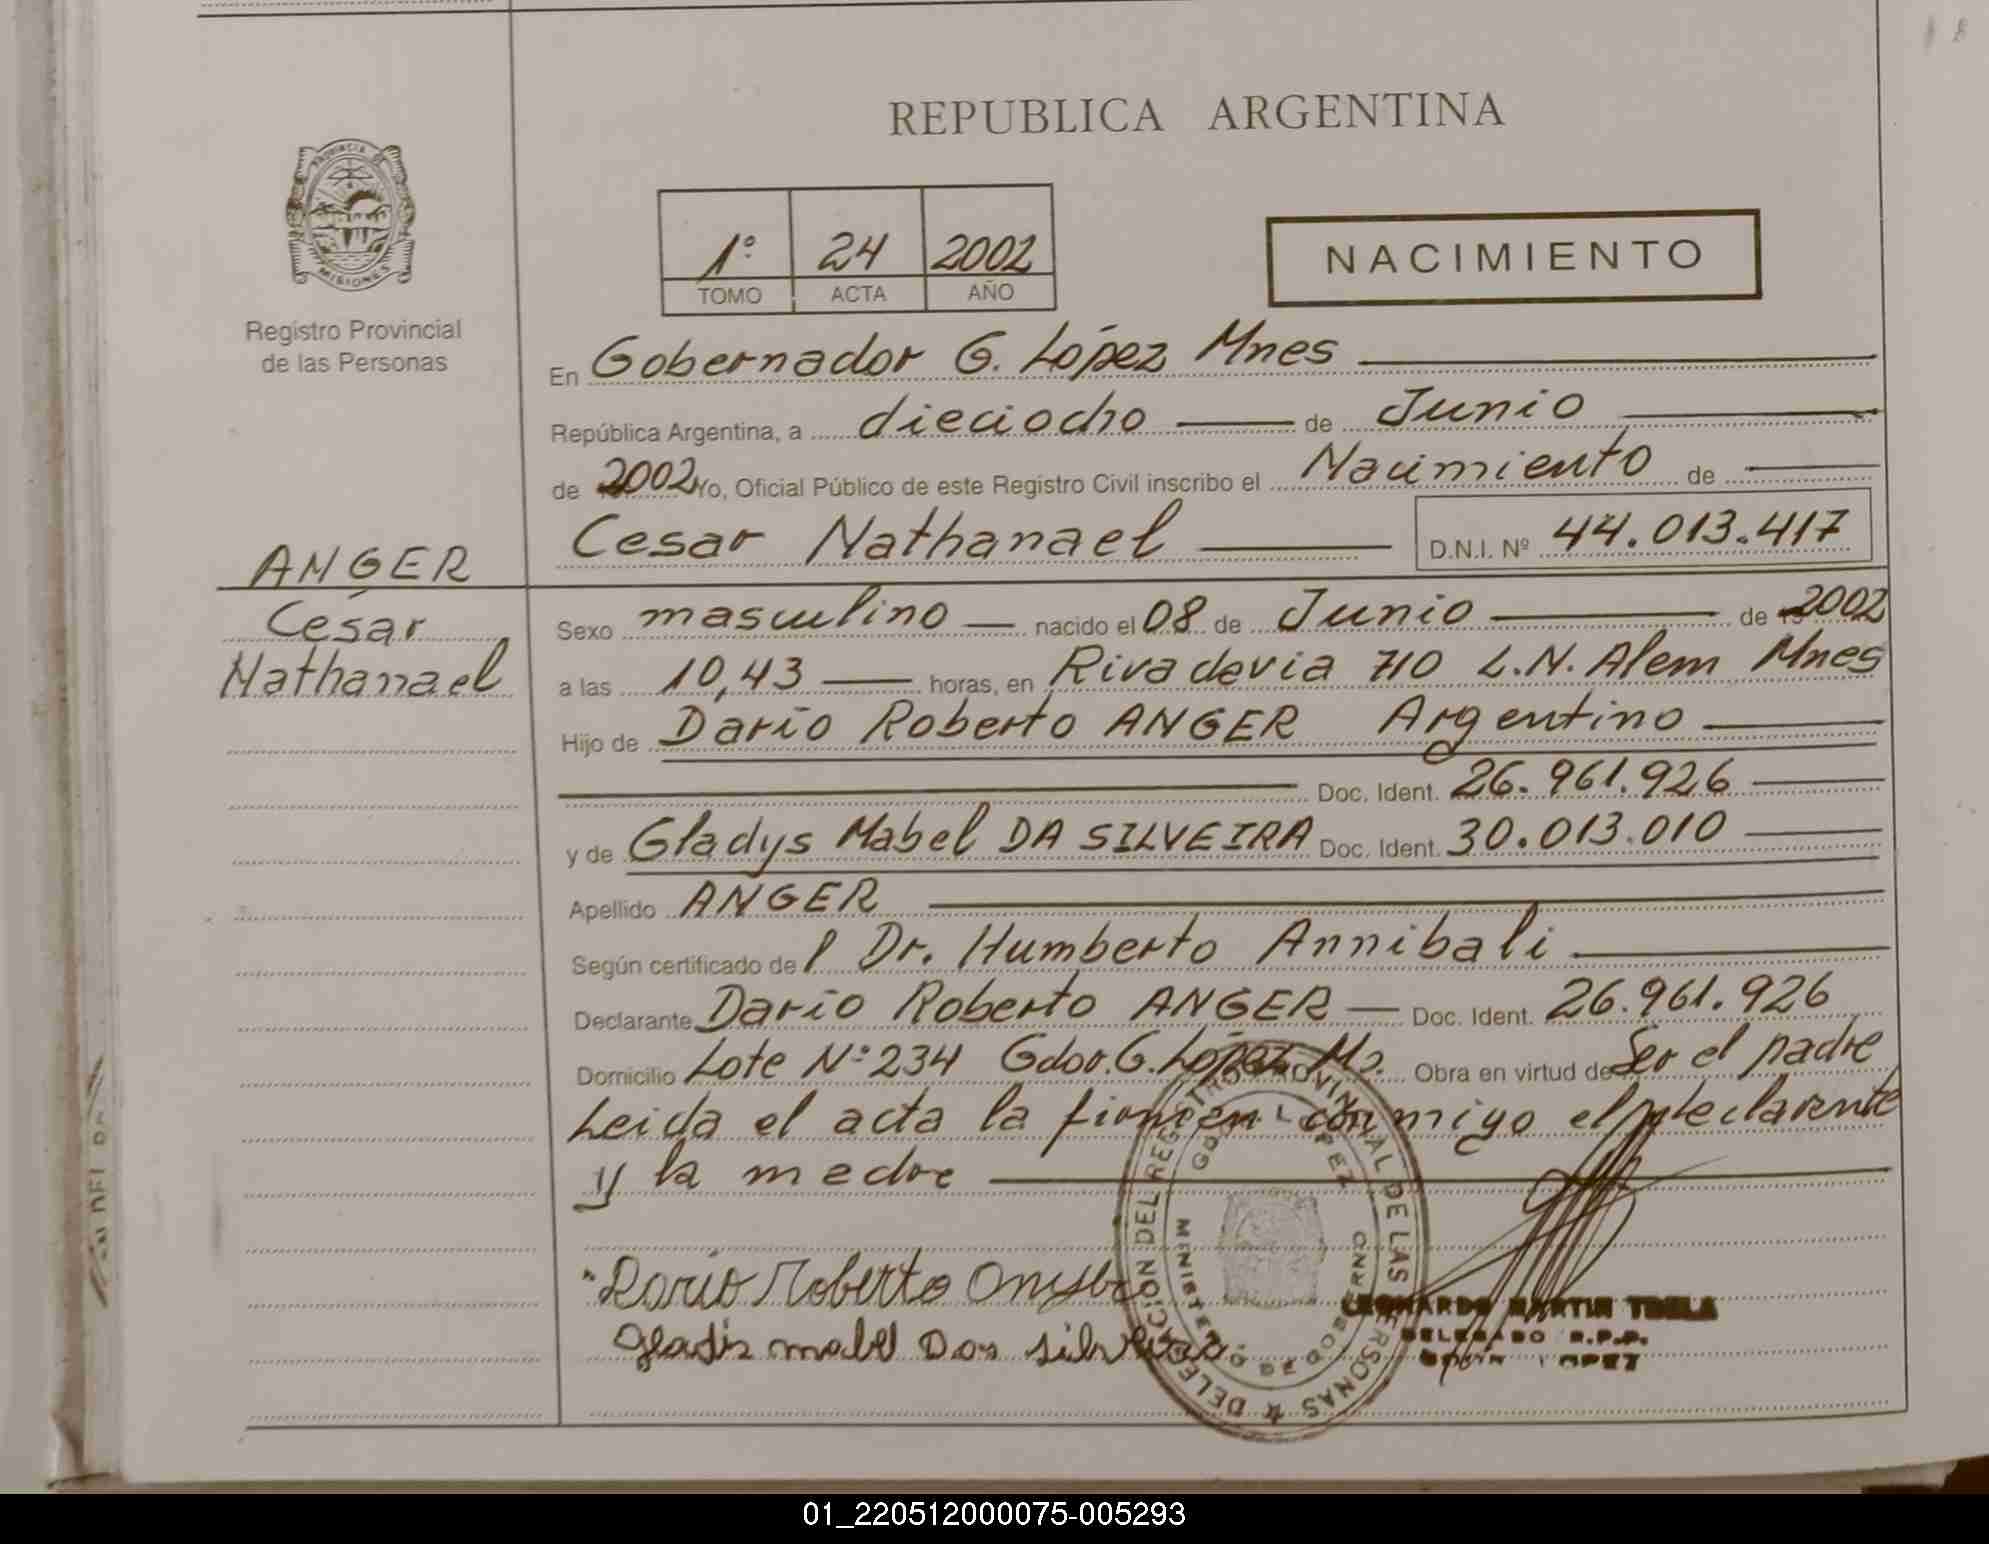 REPUBLICA ARGENTINA
PROVINCIA DE
MISIONES
Registro Provincial
de las Personas
1º 24 2002
TOMO ACTA AÑO
NACIMIENTO
En Gobernador G. López Mnes
República Argentina, a dieciocho de Junio
de 2002 Yo, Oficial Público de este Registro Civil inscribo el Nacimiento de
Cesar Nathanael D.N.I. Nº 44.013.417
ANGER
Cesar
Nathanael
Sexo masculino nacido el 08 de Junio de 2002
a las 10,43 horas, en Rivadavia 710 L.N. Alem Mnes
Hijo de Darío Roberto ANGER Argentino
Doc. Ident. 26.961.926
y de Gladys Mabel DA SILVEIRA Doc. Ident. 30.013.010
Apellido ANGER
Según certificado de Dr. Humberto Annibali
Declarante Darío Roberto ANGER Doc. Ident. 26.961.926
Domicilio Lote Nº 234 Gdor. G. López Ms. Obra en virtud de Ser el padre
Leida el acta la firman conmigo el declarante
y la madre
Dario Roberto
Gladis mabel Da silveira
DELEGACIÓN DEL REGISTRO PROVINCIAL DE LAS PERSONAS
GDOR. LOPEZ
MINISTERIO DE GOBIERNO
LEONARDO MARTIN
DELEGADO R.P.P.
LOPEZ
01_220512000075-005293